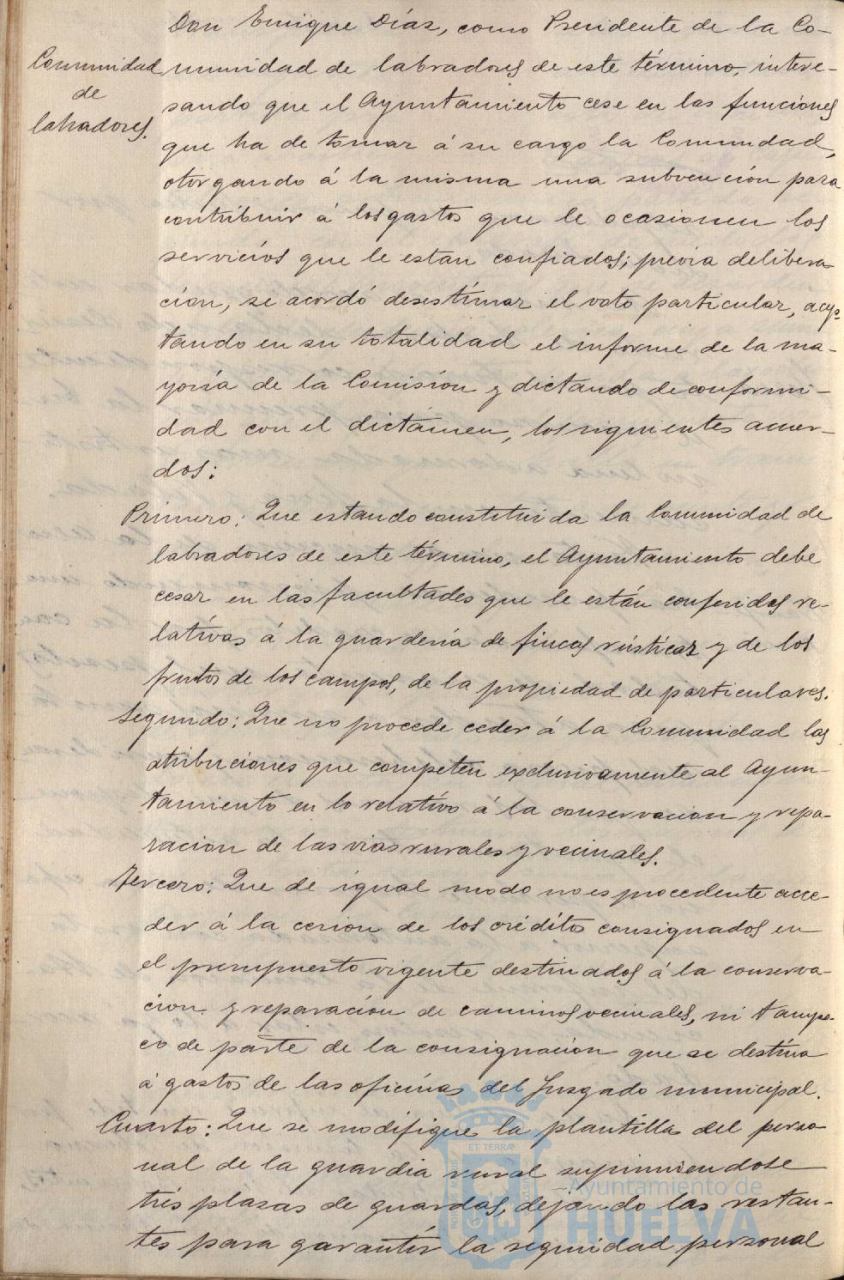 Don Enrique Díaz, como Presidente de la Co-
Comunidad
de
labradores.
munidad de labradores de este término, intere-
sando que el Ayuntamiento cese en las funciones
que ha de tomar á su cargo la Comunidad,
otorgando á la misma una subvención para
contribuir á los gastos que le ocasionen los
servicios que le estan confiados; previa delibera-
cion, se acordó desestimar el voto particular, acep-
tando en su totalidad el informe de la ma-
yoría de la Comisión y dictando de conformi-
dad con el dictámen, los siguientes acuer-
dos:
Primero: Que estando constituida la Comunidad de
labradores de este término, el Ayuntamiento debe
cesar en las facultades que le están conferidas re-
lativas á la guardería de fincas rústicas y de los
frutos de los campos, de la propiedad de particulares.
Segundo: Que no procede ceder á la Comunidad las
atribuciones que competen exclusivamente al Ayun-
tamiento en lo relativo á la conservacion y repa-
racion de las vias rurales y vecinales.
Tercero: Que de igual modo no es procedente acce-
der á la cesion de los créditos consignados en
el presupuesto vigente destinados á la conserva-
cion y reparación de caminos vecinales, ni tampo-
co de parte de la consignacion que se destina
á gastos de las oficinas del Juzgado municipal.
Cuarto: Que se modifique la plantilla del perso-
nal de la guardia rural suprimiendose
tres plazas de guardas, dejando las restan-
tes para garantir la seguridad personal
ET TERRÆ
Ayuntamiento de
HUELVA